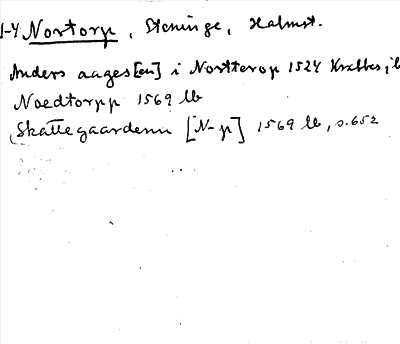 1-4 Nortorp, Steninge, Halmst.
Anders aages[en] i Nortterop 1524
Noedtorpp 1569 lb
Skattegaardenn [N-p] 1569 lb, s. 652